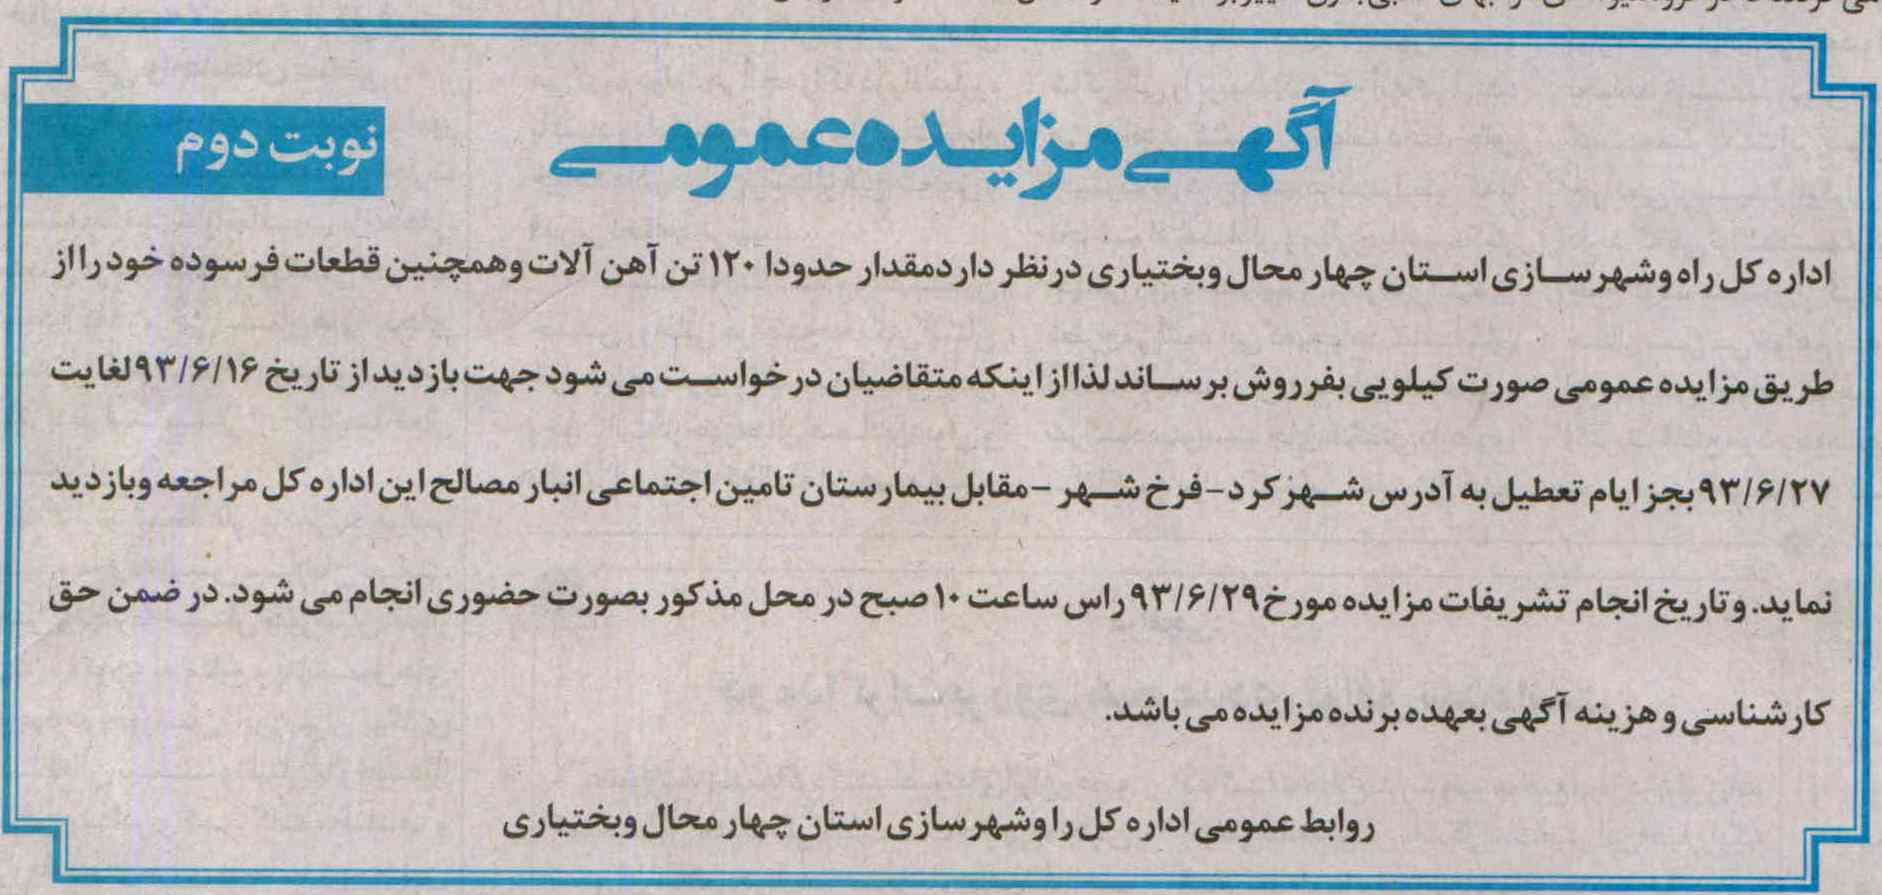 آگهی مزایده عمومی
نوبت دوم
اداره کل راه وشهرسازی استان چهار محال وبختیاری درنظر داردمقدار حدودا ۱۲۰ تن آهن آلات وهمچنین قطعات فرسوده خود رااز
طریق مزایده عمومی صورت کیلویی بفرروش برساند لذااز اینکه متقاضیان درخواست می شود جهت بازدید از تاریخ ۹۳/۶/۱۶لغایت
۹۳/۶/۲۷بجز ایام تعطیل به آدرس شهرکرد-فرخ شهر -مقابل بیمارستان تامین اجتماعی انبار مصالح این اداره کل مراجعه وبازدید
نماید. وتاریخ انجام تشریفات مزایده مورخ۹۳/۶/۲۹ راس ساعت ۱۰ صبح در محل مذکور بصورت حضوری انجام می شود. در ضمن حق
کارشناسی و هزینه آگهی بعهده برنده مزایده می باشد.
روابط عمومی اداره کل راوشهرسازی استان چهار محال وبختیاری